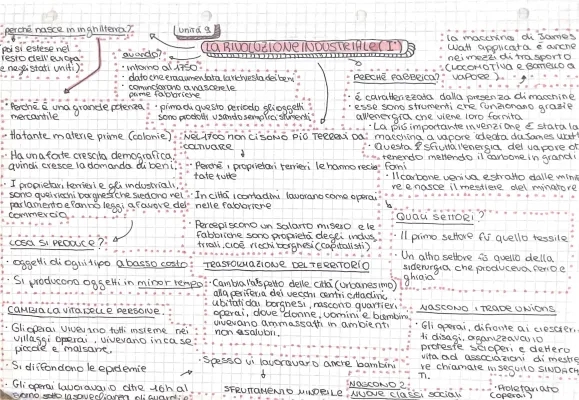 Unità 9
LA RIVOLUZIONE INDUSTRIALE (I°)
perché nasce in inghilterra?
(poi si estese nel
resto dell'europa
e negli stati uniti).
Perché è una grande potenza
mercantile
Ha tante materie prime (colonie).
Ha una forte crescita demografica,
quindi cresce la domanda di beni.
I proprietari terrieri e gli industriali,
sono quei ricchi borghesi che siedono nel
parlamento e fanno leggi a favore del
commercio.
quando?
intorno al 1750
dato che era aumentata la richiesta dei beni
cominciarono a nascere le
prime fabbriche
prima di questo periodo gli oggetti
sono prodotti usando semplici strumenti
NEL 1700 NON CI SONO PIÙ TERRENI DA
COLTIVARE
Perché i proprietari terrieri le hanno recin-
tate tutte
In città i contadini lavorano come operai
nelle fabbriche
Percepiscono un salario misero e le
fabbriche sono proprietà degli indus
triali, cioè ricchi borghesi (capitalisti)
PERCHÉ FABBRICA?
é caratterizzata dalla presenza di macchine
esse sono strumenti che funzionano grazie
all'energia che viene loro fornita
La più importante invenzione è stata la
macchina a vapore ideata da James Watt
Questa sfrutta l'energia del vapore ot
tenendo mettendo il carbone in grandi
forni
Il carbone veniva estratto dalle mini
re e nasce il mestiere del minatore
la macchina di James
Watt applicata è anche
nei mezzi di trasporto
(LOCOMOTIVA E BATTELLO A
VAPORE)
QUALI SETTORI?
Il primo settore fù quello tessile
Un altro settore fù quello della
siderurgia, che produceva ferro e
ghisa
COSA SI PRODUCE?
oggetti di ogni tipo a basso costo
Si producono oggetti in minor tempo
TRASFORMAZIONE DEL TERRITORIO
Cambia l'aspetto delle città (urbanesimo)
alla periferia dei vecchi centri cittadini,
abitati dai borghesi, nascono quartieri
operai, dove donne, uomini e bambini
vivevano ammassati in ambienti
non salubri.
Spesso vi lavoravano anche bambini
SFRUTTAMENTO MINORILE
CAMBIA LA VITA DELLE PERSONE.
Gli operai vivevano tutti insieme nei
villaggi operai, vivevano in case
piccole e malsane.
Si diffondono le epidemie
Gli operai lavoravano oltre 16h al
giorno sotto la sorveglianza di guardie
NASCONO I TRADE UNIONS
Gli operai, di fronte ai crescen
ti disagi, organizzavano
proteste scioperi e dettero
vita ad associazioni di mestie
re chiamate in seguito SINDACA
TI.
NASCONO 2
NUOVE CLASSI sociali
Proletariato
(operai)